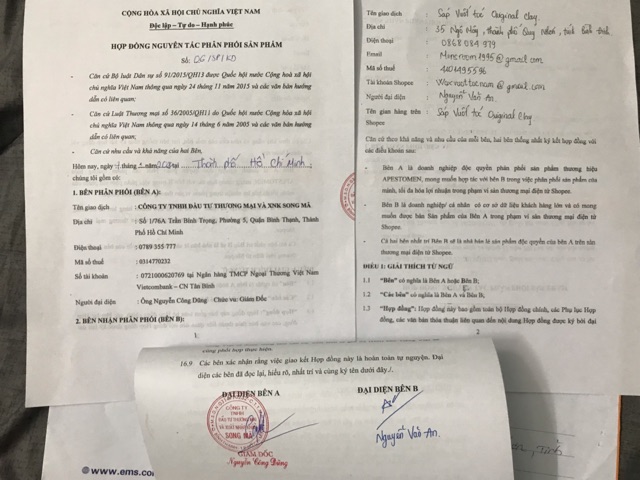 CỘNG HÒA XÃ HỘI CHỦ NGHĨA VIỆT NAM
Độc lập – Tự do – Hạnh phúc
HỢP ĐỒNG NGUYÊN TẮC PHÂN PHỐI SẢN PHẨM
Số:
- Căn cứ Bộ luật Dân sự số 91/2015/QH13 được Quốc hội nước Cộng hoà xã hội
chủ nghĩa Việt Nam thông qua ngày 24 tháng 11 năm 2015 và các văn bản hướng
dẫn có liên quan;
- Căn cứ Luật Thương mại số 36/2005/QH11 do Quốc hội nước Cộng hoà xã hội
chủ nghĩa Việt Nam thông qua ngày 14 tháng 6 năm 2005 và các văn bản hướng
dẫn có liên quan;
- Căn cứ nhu cầu và khả năng của hai Bên,
Hôm nay, ngày tháng năm tại Thành phố Hồ Chí Minh,
chúng tôi gồm có:
1. BÊN PHÂN PHỐI (BÊN A):
Tên giao dịch : CÔNG TY TNHH ĐẦU TƯ THƯƠNG MẠI VÀ XNK SONG MÃ
Địa chỉ : Số 1/76A Trần Bình Trọng, Phường 5, Quận Bình Thạnh, Thành
Phố Hồ Chí Minh
Điện thoại : 0789 355 777
Mã số thuế : 0314770232
Số tài khoản : 0721000620769 tại Ngân hàng TMCP Ngoại Thương Việt Nam
Vietcombank – CN Tân Bình
Người đại diện : Ông Nguyễn Công Dũng Chức vụ: Giám Đốc
2. BÊN NHẬN PHÂN PHỐI (BÊN B):
1
Tên giao dịch : Sáp Vuốt tóc Original Clay.
Địa chỉ : 35 Ngô Mây, thành phố Quy Nhơn, tỉnh Bình Định
Điện thoại : 0868 084 979
Email : @gmail.com
Mã số thuế : 4101495596
Tài khoản Shopee : @gmail.com
Người đại diện : Nguyễn Văn An.
Tên gian hàng trên : Sáp Vuốt tóc Original Clay
Shopee
Căn cứ theo khả năng và nhu cầu của mỗi bên, hai bên thống nhất ký kết hợp đồng với
các điều khoản sau:
- Bên A là doanh nghiệp độc quyền phân phối sản phẩm thương hiệu
APESTOMEN, mong muốn hợp tác với bên B trong việc phân phối sản phẩm của
mình, tối đa hóa lợi nhuận trong phạm vi sàn thương mại điện tử Shopee.
- Bên B là doanh nghiệp/ cá nhân có cơ sở dữ liệu khách hàng lớn và có mong
muốn được bán Sản phẩm của Bên A trong phạm vi sàn thương mại điện tử
Shopee.
- Cả hai bên nhất trí Bên B sẽ là nhà bán sản phẩm độc quyền của bên A trên sàn
thương mại điện tử Shopee.
ĐIỀU 1: GIẢI THÍCH TỪ NGỮ
1.1 "Bên" có nghĩa là Bên A hoặc Bên B;
1.2 "Các bên" có nghĩa là Bên A và Bên B;
1.3 "Hợp đồng": Hợp đồng này bao gồm toàn bộ Hợp đồng chính, các Phụ lục Hợp
đồng, các văn bản thỏa thuận liên quan đến nội dung Hợp đồng được ký bởi đại
2
cùng phối hợp thực hiện.
16.9 Các bên xác nhận rằng việc giao kết Hợp đồng này là hoàn toàn tự nguyện. Đại
diện các bên đã đọc lại, hiểu rõ, nhất trí và cùng ký tên dưới đây./.
ĐẠI DIỆN BÊN A ĐẠI DIỆN BÊN B
CÔNG TY
TNHH
ĐẦU TƯ THƯƠNG MẠI
VÀ XUẤT NHẬP KHẨU
SONG MÃ
GIÁM ĐỐC
Nguyễn Công Dũng
Nguyễn Văn An.
www.ems.co